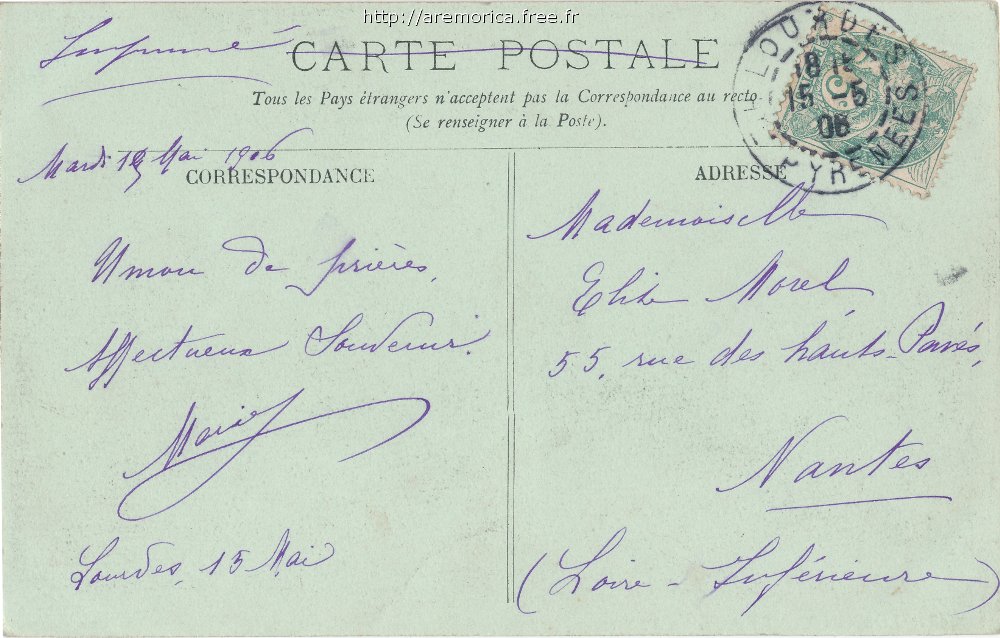 http://aremorica.free.fr
Imprimé
CARTE POSTALE
Tous les Pays étrangers n'acceptent pas la Correspondance au recto
(Se renseigner à la Poste).
Mardi 15 Mai 1906
CORRESPONDANCE
Union de prières,
Affectueux Souvenir.
Marie
Lourdes, 15 Mai
LOURDES
15 -5
06
PYRENEES
ADRESSE
Mademoiselle
Elise Morel
55, rue des hauts-Pavés,
Nantes
(Loire-Inférieure)